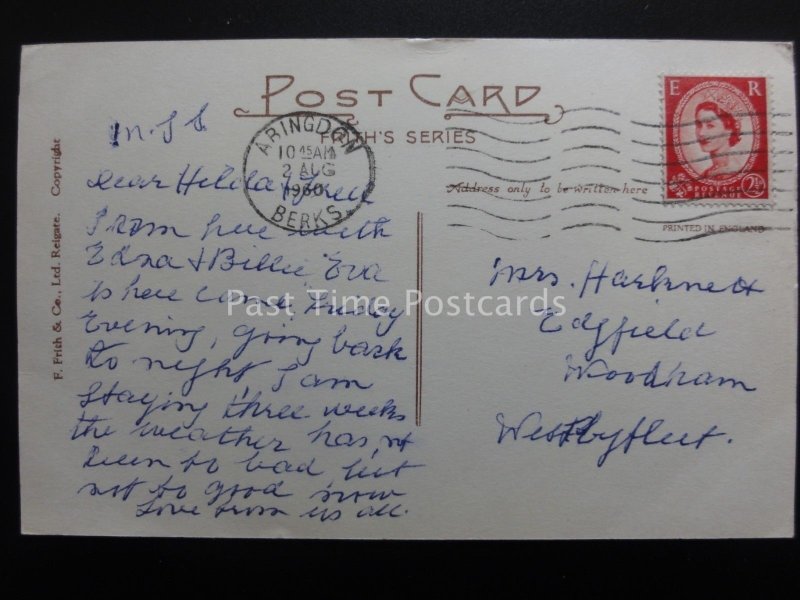 POST CARD
FRITH'S SERIES
Address only to be written here
PRINTED IN ENGLAND
F. Frith & Co., Ltd. Reigate. Copyright
ABINGDON
10 45 AM
2 AUG
1960
BERKS.
E R
POSTAGE
REVENUE
2½
Dear Hilda
from here with
Edna & Billie Eva
is here came Friday
Evening, going back
to night, I am
staying three weeks
the weather has nt
been so bad but
not so good now
Love from us all.
Mrs. Harknett
Edgfield
Woodham
Westbyfleet.
Past Time Postcards